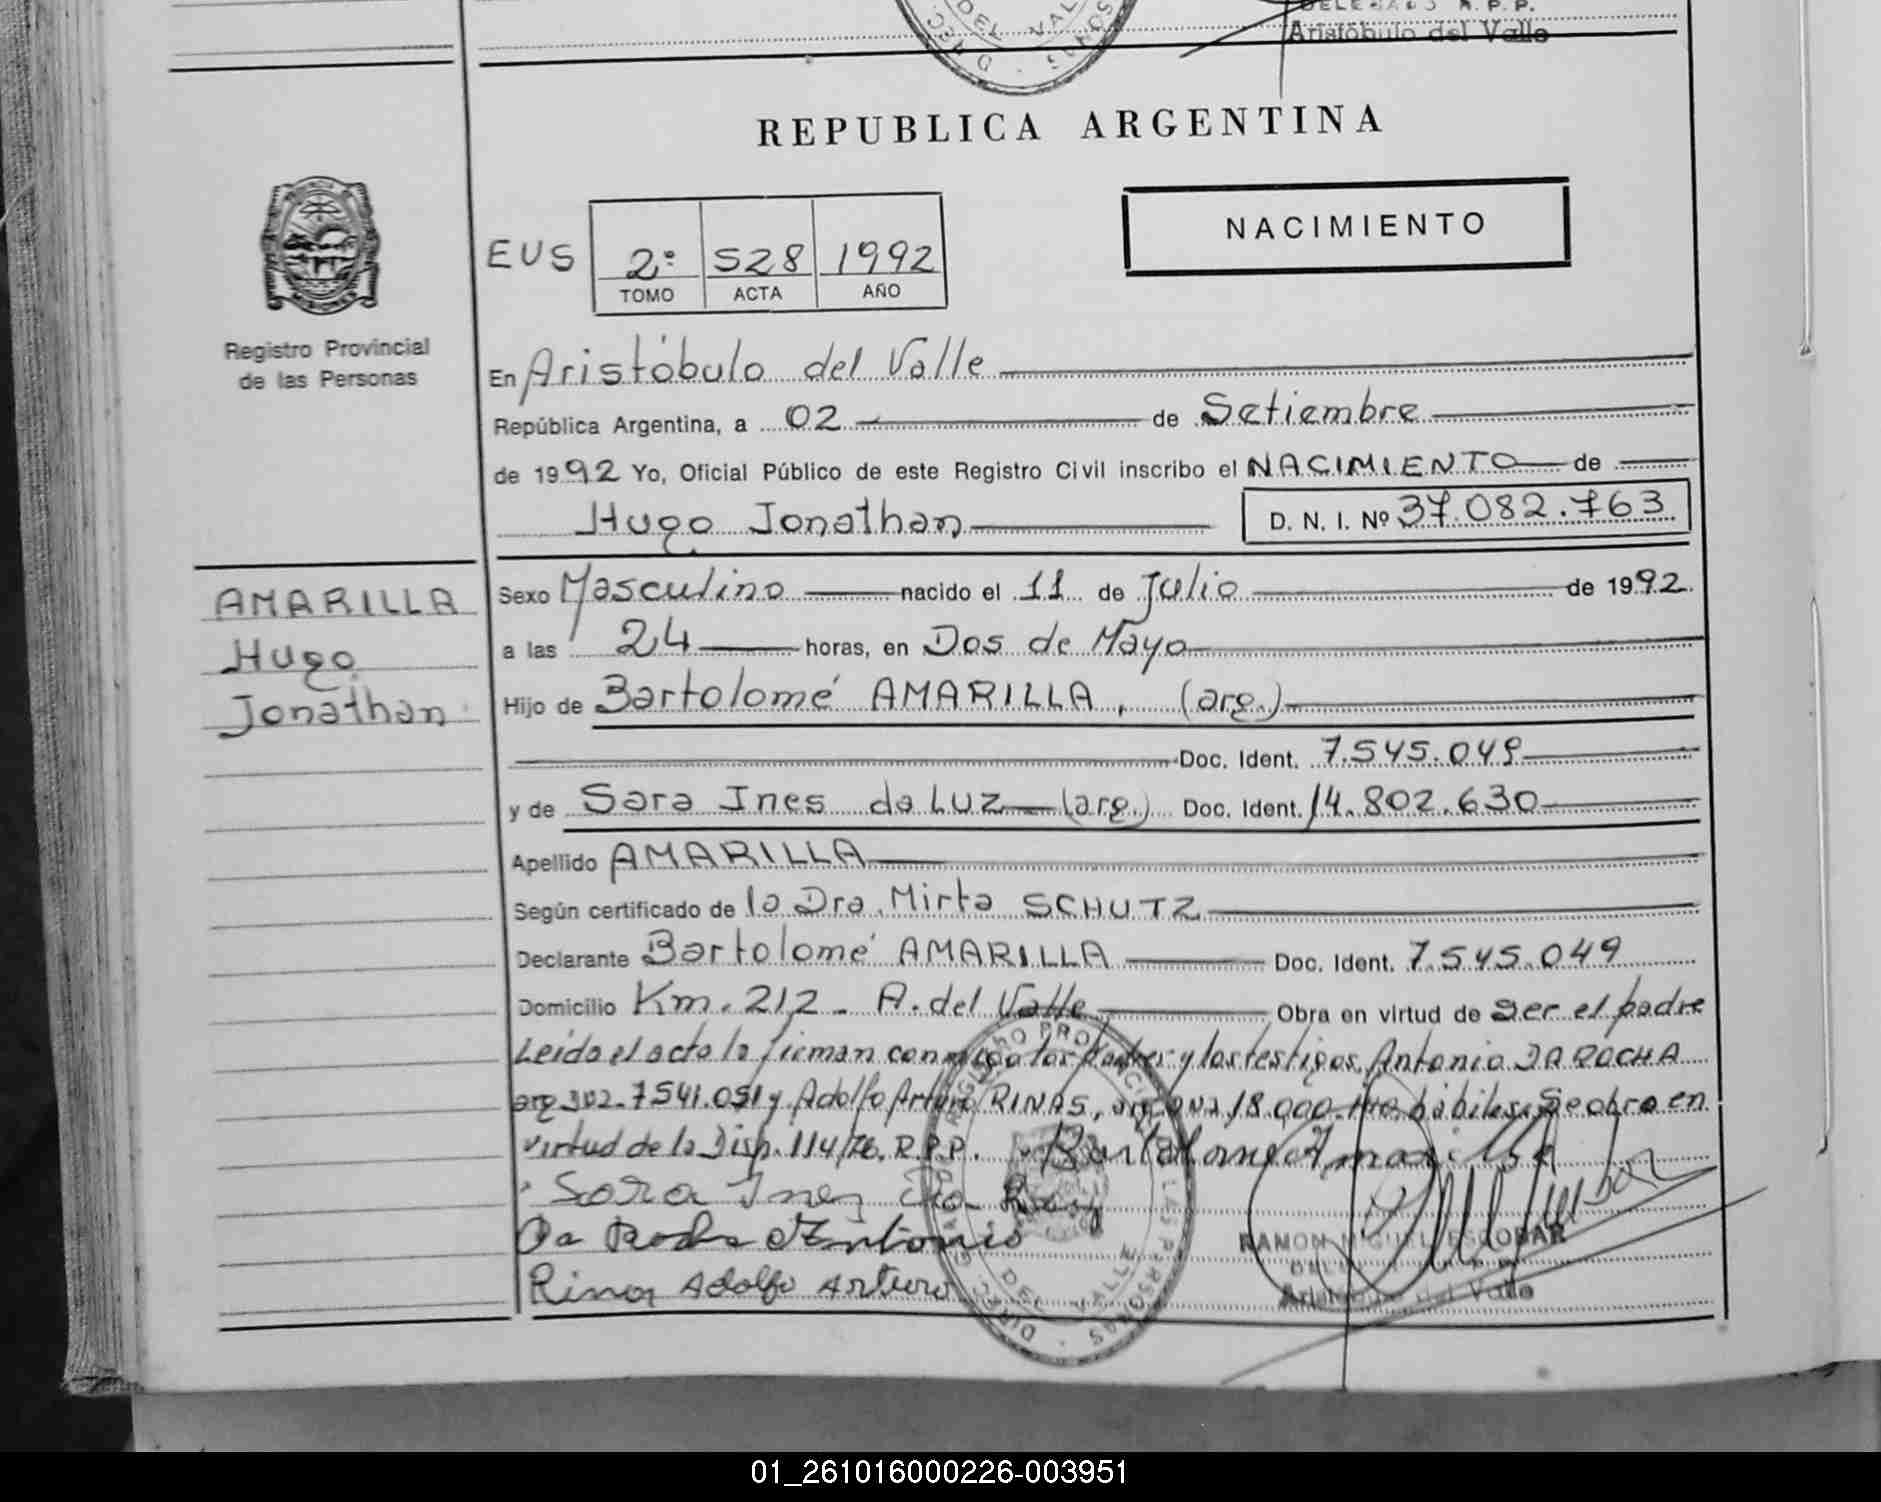 DELEGADO R.P.P.
Aristóbulo del Valle
REPUBLICA ARGENTINA
NACIMIENTO
EUS 2º 528 1992
TOMO ACTA AÑO
Registro Provincial
de las Personas
En Aristóbulo del Valle
República Argentina, a 02 de Setiembre
de 1992 Yo, Oficial Público de este Registro Civil inscribo el NACIMIENTO de
Hugo Jonathan D. N. I. Nº 37.082.763
AMARILLA
Hugo
Jonathan
Sexo Masculino nacido el 11 de Julio de 1992.
a las 24 horas, en Dos de Mayo
Hijo de Bartolomé AMARILLA, (arg.)
Doc. Ident. 7.545.049
y de Sara Ines da LUZ (arg.) Doc. Ident. 14.802.630
Apellido AMARILLA
Según certificado de la Dra. Mirta SCHUTZ
Declarante Bartolomé AMARILLA Doc. Ident. 7.545.049
Domicilio Km. 212 - A. del Valle Obra en virtud de ser el padre
Leida el acta la firman conmigo los padres y los testigos Antonio DA ROCHA
arg. 7.541.051 y Adolfo Arturo RINAS, 18.000. hábiles. Se obra en
virtud de la Disp. 114/76. R.P.P. Bartolome Amarilla
Sara Ines Da Luz
Da Rocha Antonio
RAMON MIGUEL ESCOBAR
Aristóbulo del Valle
Rinas Adolfo Arturo
01_261016000226-003951